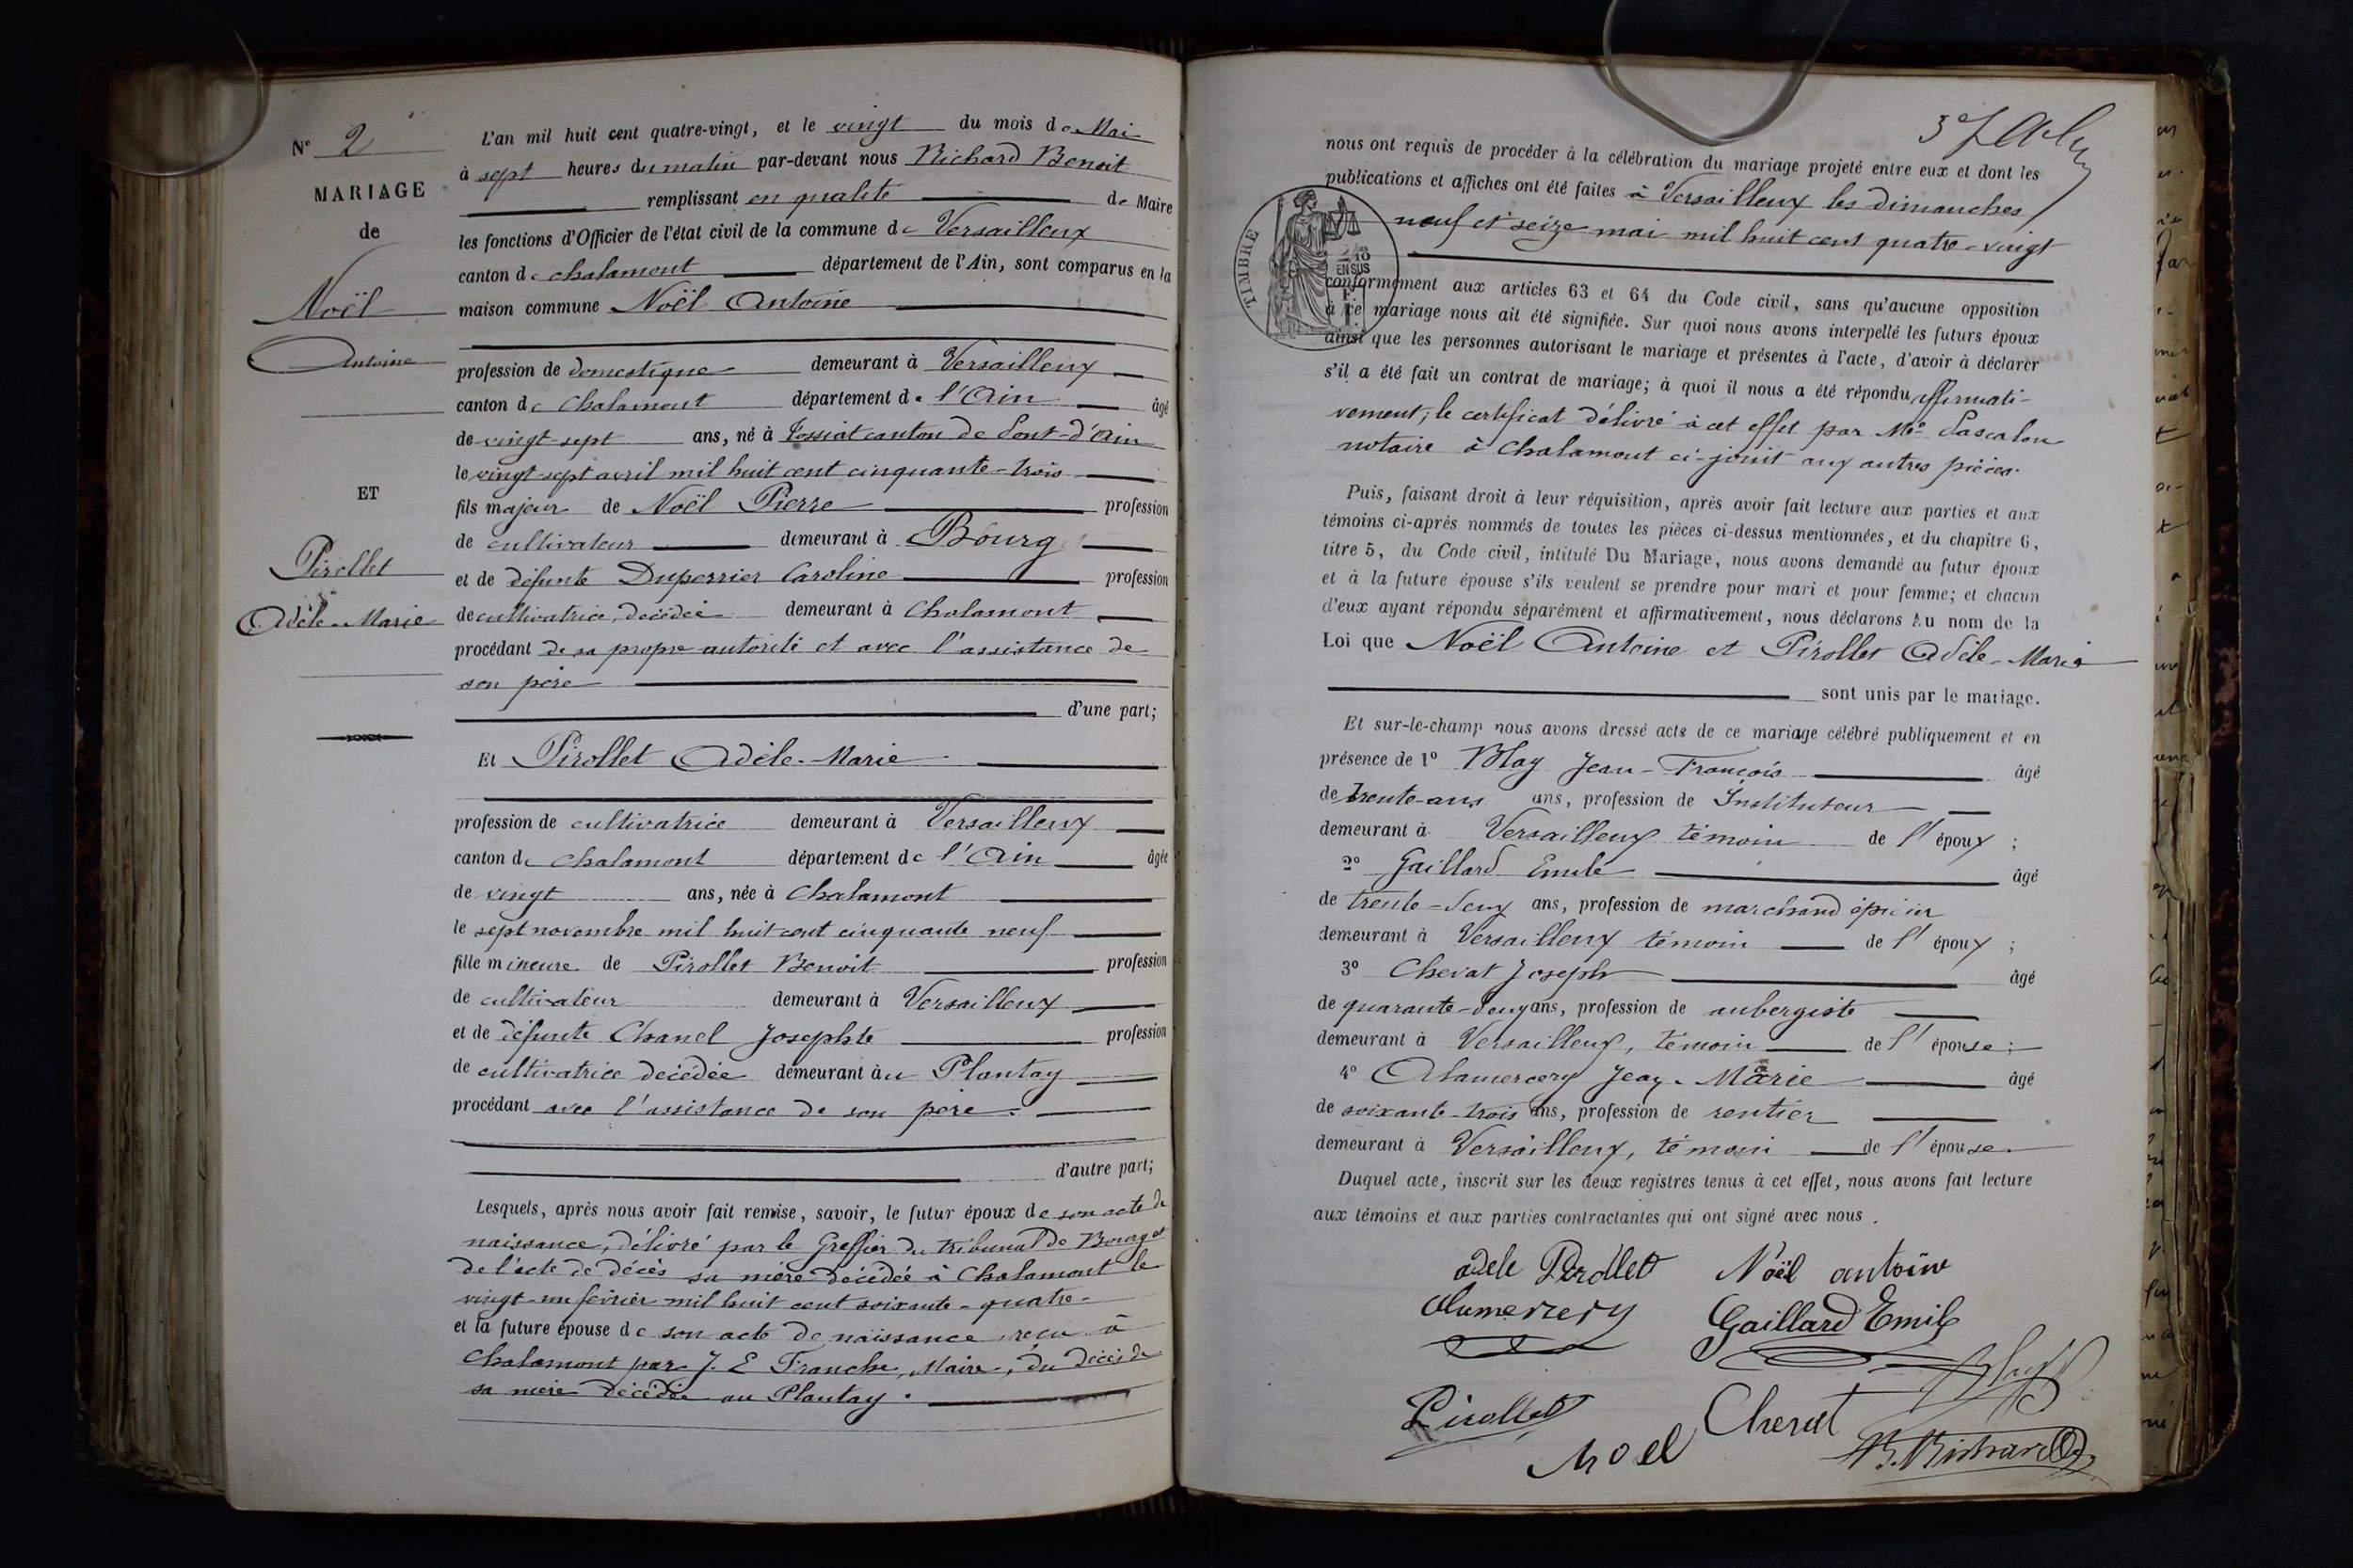 N° 2
MARIAGE
de
Noël
Antoine
ET
Pirollet
Adèle-Marie
L'an mil huit cent quatre-vingt, et le vingt du mois de Mai
à sept heures du matin par-devant nous Richard Benoit
remplissant en qualité de Maire
les fonctions d'Officier de l'état civil de la commune de Versailleux
canton de chalamont département de l'Ain, sont comparus en la
maison commune Noël Antoine
profession de domestique demeurant à Versailleux
canton de Chalamont département de l'Ain âgé
de vingt-sept ans, né à Tossiat canton de Pont-d'Ain
le vingt-sept avril mil huit cent cinquante-trois
fils majeur de Noël Pierre profession
de cultivateur demeurant à Bourg
et de défunte Duperrier Caroline profession
de cultivatrice, décédée demeurant à Chalamont
procédant de sa propre autorité et avec l'assistance de
son père
d'une part;
Et Pirollet Adèle-Marie
profession de cultivatrice demeurant à Versailleux
canton de Chalamont département de l'Ain âgée
de vingt ans, née à Chalamont
le sept novembre mil huit cent cinquante neuf
fille mineure de Pirollet Benoit profession
de cultivateur demeurant à Versailleux
et de défunte Chanel Josephte profession
de cultivatrice decédée demeurant au Plantay
procédant avec l'assistance de son père.
d'autre part;
Lesquels, après nous avoir fait remise, savoir, le futur époux de son acte de
naissance, délivré par le Greffier du tribunal de Bourg et
de l'acte de décès sa mère décédée à Chalamont le
vingt-un février mil huit cent soixante-quatre-
et la future épouse de son acte de naissance reçu à
Chalamont par J. E Franche, Maire, du décès de
sa mère décédée au Plantay.
nous ont requis de procéder à la célébration du mariage projeté entre eux et dont les
publications et affiches ont été faites à Versailleux les dimanches
neuf et seize mai mil huit cent quatre-vingt
TIMBRE
2/10
EN SUS
conformément aux articles 63 et 64 du Code civil, sans qu'aucune opposition
à ce mariage nous ait été signifiée. Sur quoi nous avons interpellé les futurs époux
ainsi que les personnes autorisant le mariage et présentes à l'acte, d'avoir à déclarer
s'il a été fait un contrat de mariage; à quoi il nous a été répondu affirmati-
vement, le certificat délivré à cet effet par Me Pascalon
notaire à Chalamont ci-joint aux autres pièces.
Puis, faisant droit à leur réquisition, après avoir fait lecture aux parties et aux
témoins ci-après nommés de toutes les pièces ci-dessus mentionnées, et du chapitre 6,
titre 5, du Code civil, intitulé Du Mariage, nous avons demandé au futur époux
et à la future épouse s'ils veulent se prendre pour mari et pour femme; et chacun
d'eux ayant répondu séparément et affirmativement, nous déclarons Au nom de la
Loi que Noël Antoine et Pirollet Adèle-Marie
sont unis par le mariage.
Et sur-le-champ nous avons dressé acte de ce mariage célébré publiquement et en
présence de 1° Blay Jean-François âgé
de Trente-ans ans, profession de Instituteur
demeurant à Versailleux témoin de l'époux ;
2° Gaillard Emile âgé
de trente-deux ans, profession de marchand épicier
demeurant à Versailleux témoin de l'époux ;
3° Chevat Joseph âgé
de quarante-deux ans, profession de aubergiste
demeurant à Versailleux, témoin de l'épouse ;
4° Alamercery Jean-Marie âgé
de soixante-trois ans, profession de rentier
demeurant à Versailleux, témoin de l'épouse.
Duquel acte, inscrit sur les deux registres tenus à cet effet, nous avons fait lecture
aux témoins et aux parties contractantes qui ont signé avec nous.
adele Pirollet Noël antoine
Alamercery Gaillard Emile
Pirollet Chevat
Noel B. Richard